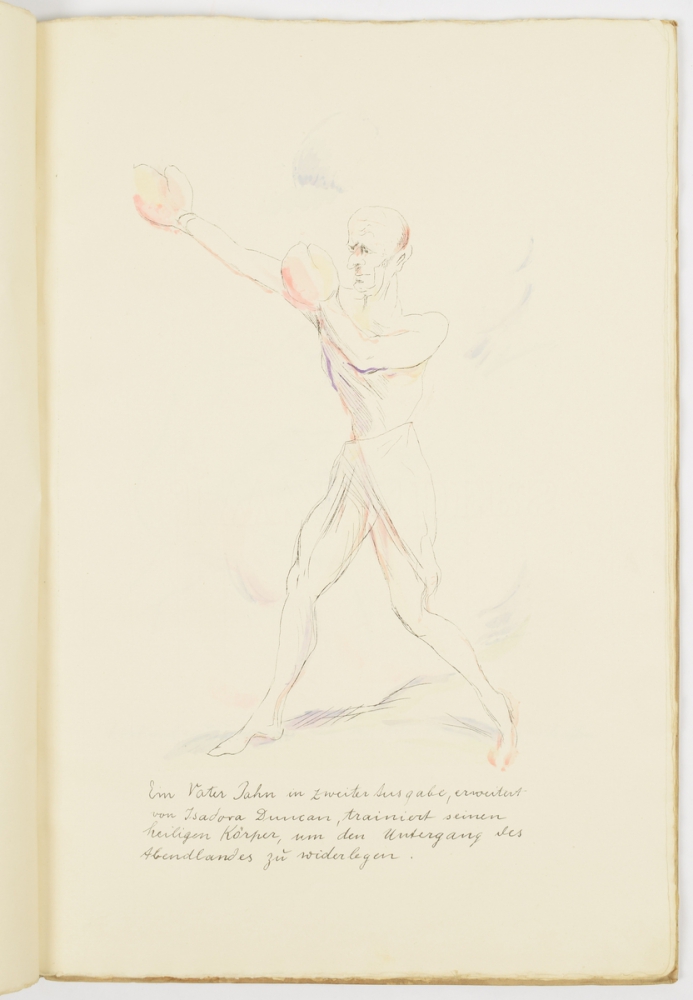 Ein Vater Jahn in zweiter Ausgabe, erweitert
von Isadora Duncan, trainiert seinen
heiligen Körper, um den Untergang des
Abendlandes zu widerlegen.